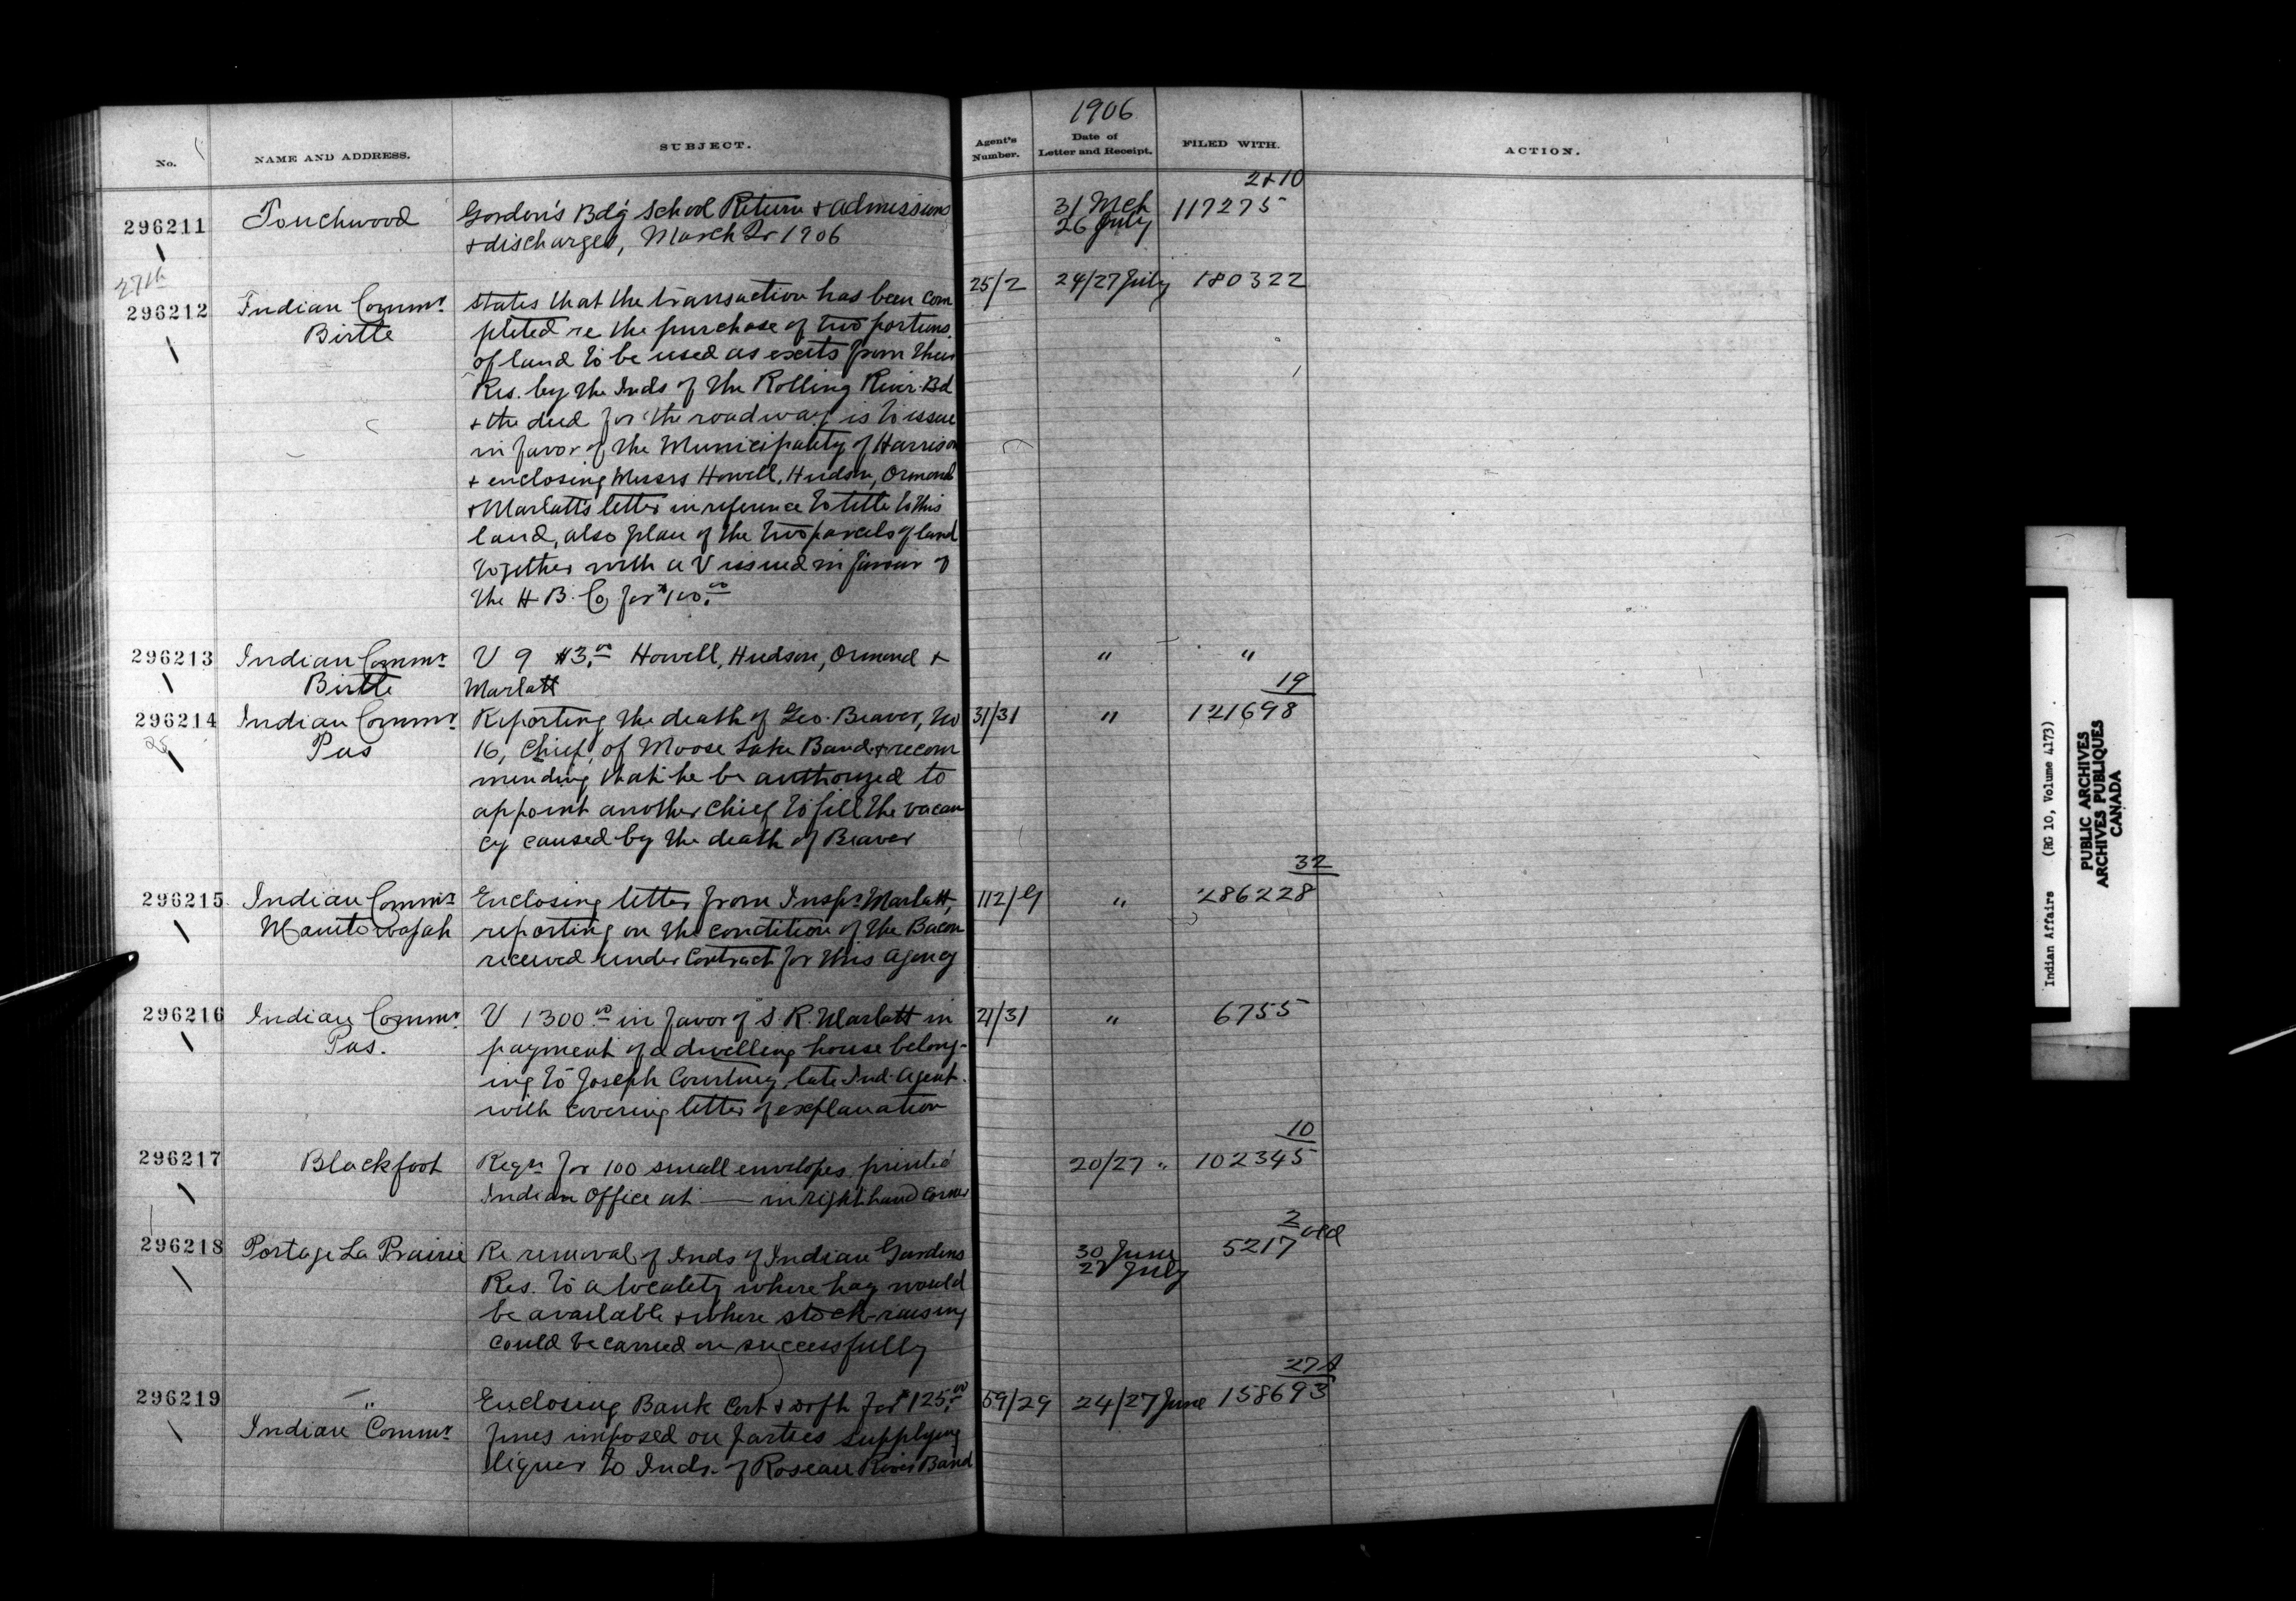 1906
No. NAME AND ADDRESS. SUBJECT. Agent's Number. Date of Letter and Receipt. FILED WITH. ACTION.
2+10
296211 Touchwood Gordon's Bdg School Return & admissions 31 Mch 117275
& discharges, March Qr 1906 26 July
27th
296212 Indian Commr. States that the transaction has been com 25/2 24/27 July 180322
Birtle pleted re the purchase of two portions
of land to be used as exits from their
Res. by the Inds of the Rolling River Bd
& the deed for the roadway is to issue
in favor of the Municipality of Harrison
& enclosing Messrs Howell, Hudson, Ormond
& Marlatt's letter in reference to title to this
land, also plan of the two parcels of land
together with a V issued in favour of
the H B. Co for $100.00
296213 Indian Commr. V 9 $3.00 Howell, Hudson, Ormond & " "
Birtle Marlatt
19
296214 Indian Commr. Reporting the death of Geo. Beaver, No 31/31 " 121698
25 Pas 16, Chief, of Moose Lake Band & recom
mending that he be authorized to
appoint another Chief to fill the vacan
cy caused by the death of Beaver
32
296215 Indian Commr. Enclosing letter from Inspr. Marlatt, 112/G " 286228
Manitowapah reporting on the condition of the Bacon
received under Contract for this Agency
296216 Indian Commr. V 1300.00 in favor of S. R. Marlatt in 21/31 " 6755
Pas. payment of a dwelling house belong-
ing to Joseph Courtney, late Ind. Agent.
with covering letter of explanation
10
296217 Blackfoot Reqn for 100 small envelopes printed 20/27 " 102345
Indian Office at — in right hand corner
2
296218 Portage La Prairie Re removal of Inds of Indian Gardens 30 June 5217 old
Res. to a locality where hay would 27 July
be available & where stock-raising
could be carried on successfully
27A
296219 " Enclosing Bank Cert & dft for $125.00 59/29 24/27 June 158693
Indian Commr. fines imposed on parties supplying
liquor to Inds. of Roseau River Band
Indian Affairs (RG 10, Volume 4173)
PUBLIC ARCHIVES
ARCHIVES PUBLIQUES
CANADA